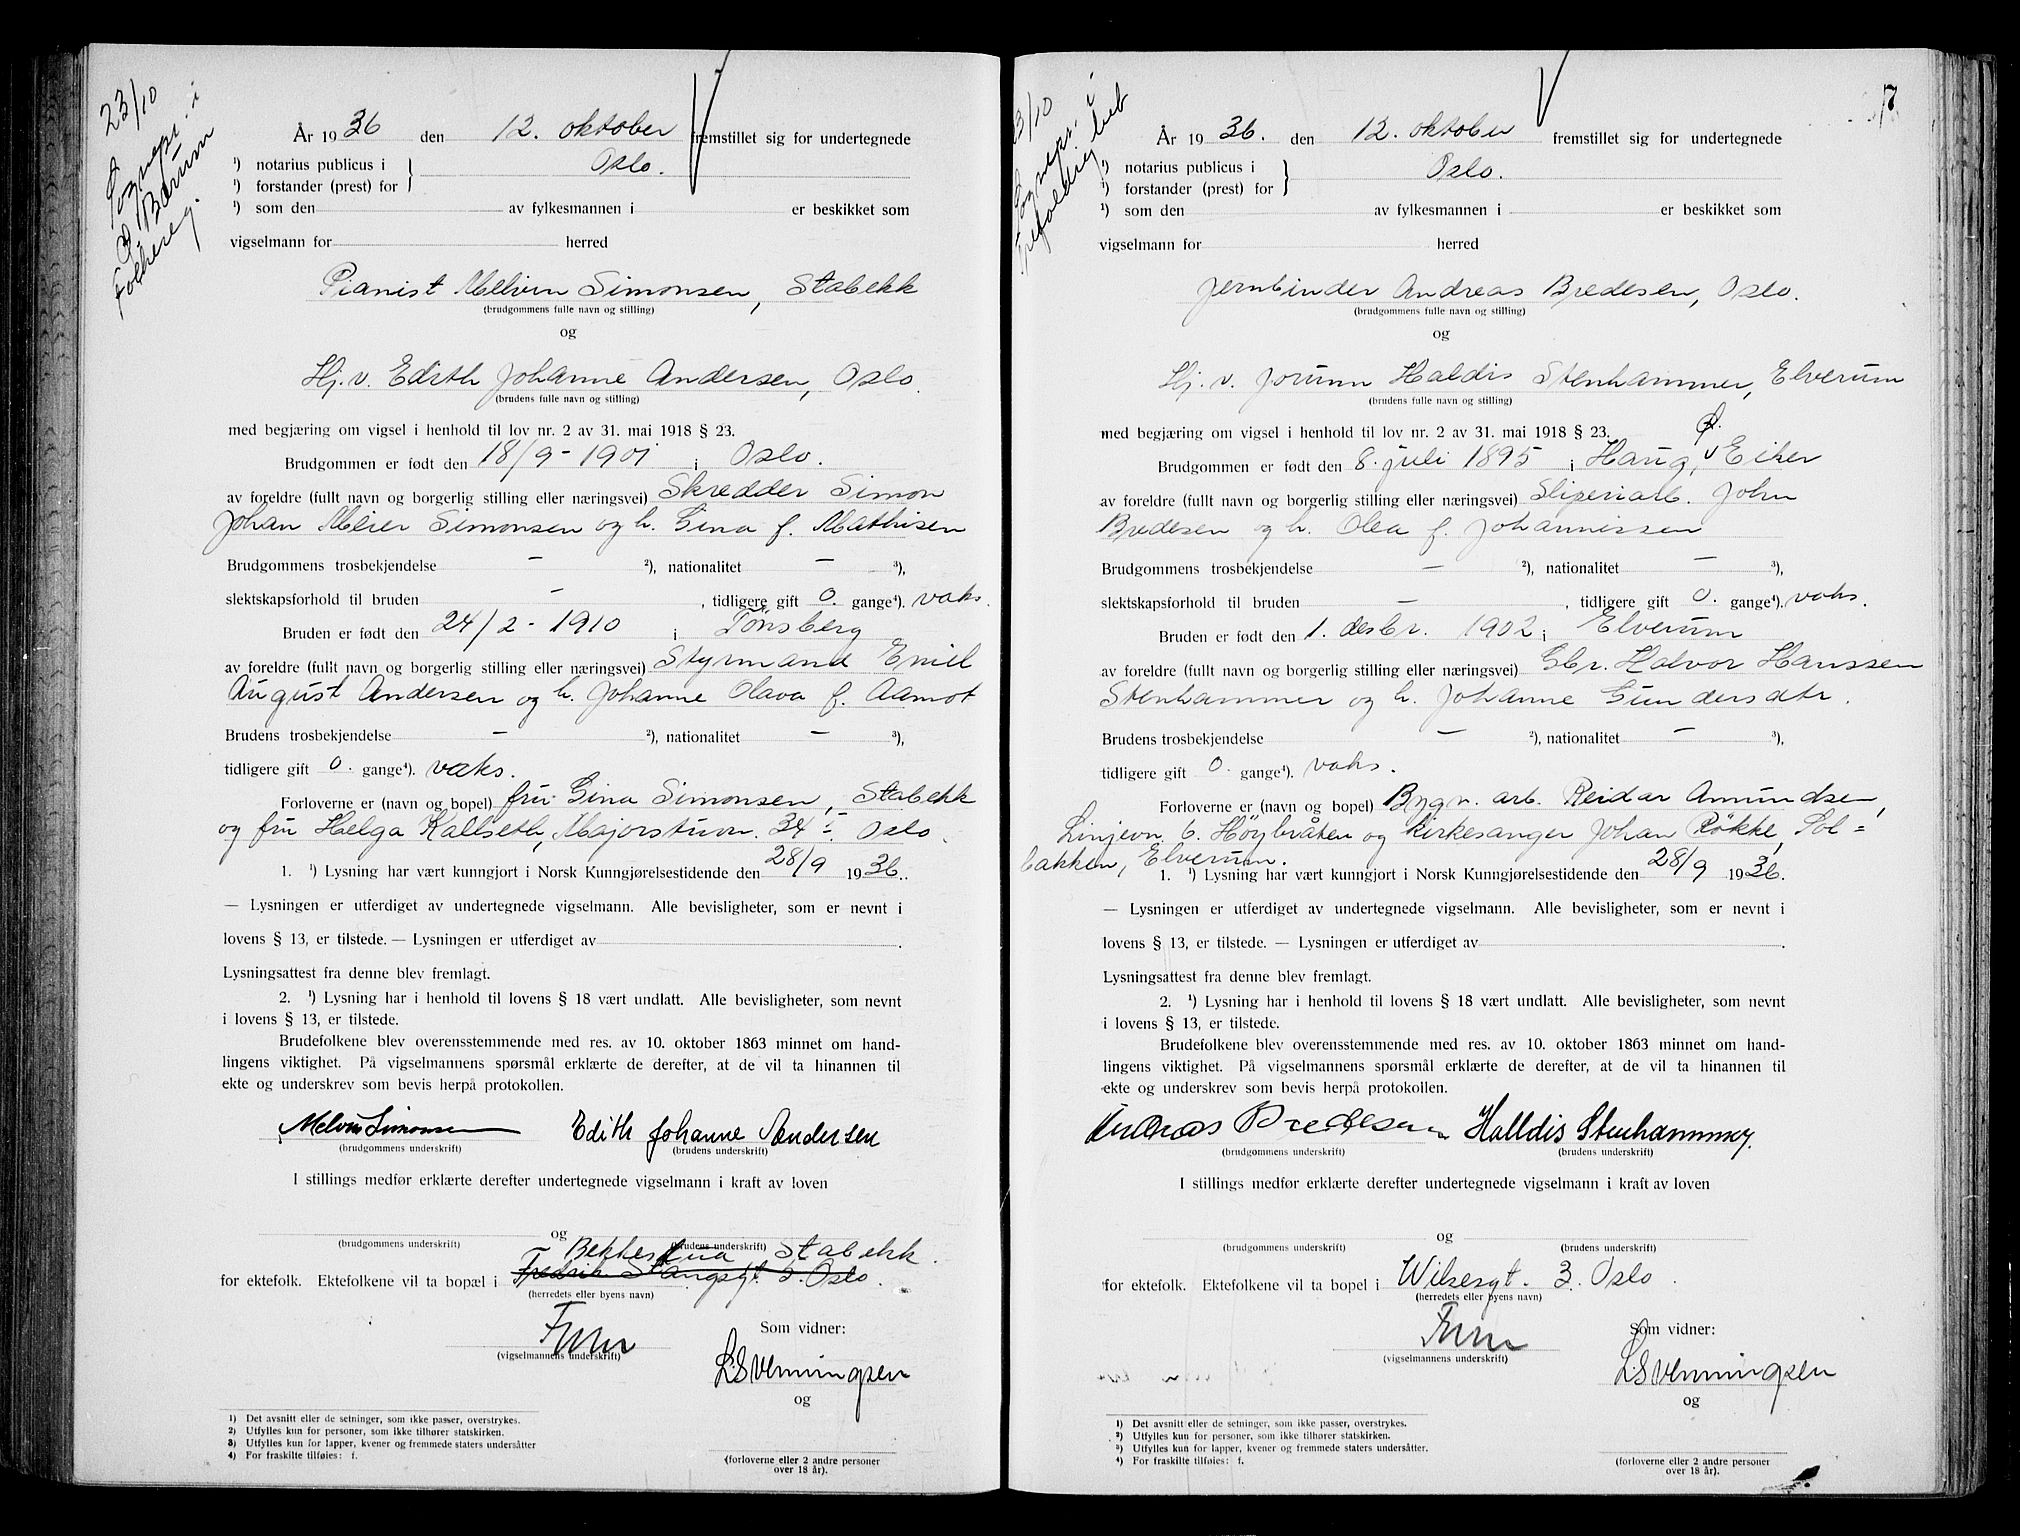 23/10
Sognepr. i
V. Bærum
Folkereg.
År 1936 den 12. oktober fremstillet sig for undertegnede
¹) notarius publicus i
¹) forstander (prest) for } Oslo.
¹) som den av fylkesmannen i er beskikket som
vigselmann for herred
Pianist Melvin Simonsen, Stabekk
(brudgommens fulle navn og stilling)
og
Hj.v. Edith Johanne Andersen, Oslo.
(brudens fulle navn og stilling)
med begjæring om vigsel i henhold til lov nr. 2 av 31. mai 1918 § 23.
Brudgommen er født den 18/9 - 1901 i Oslo.
av foreldre (fullt navn og borgerlig stilling eller næringsvei) Skredder Simon
Johan Meier Simonsen og h. Gina f. Mathisen
Brudgommens trosbekjendelse - ²), nationalitet - ³),
slektskapsforhold til bruden - , tidligere gift 0. gange⁴). vaks.
Bruden er født den 24/2 - 1910 i Tønsberg
av foreldre (fullt navn og borgerlig stilling eller næringsvei) Styrmand Emil
August Andersen og h. Johanne Olava f. Aamot
Brudens trosbekjendelse - ²), nationalitet - ³),
tidligere gift 0. gange⁴). vaks.
Forloverne er (navn og bopel) fru Gina Simonsen, Stabekk
og fru Helga Kallseth, Majorstuvn. 34 Oslo.
1. ¹) Lysning har vært kunngjort i Norsk Kunngjørelsestidende den 28/9 1936.
— Lysningen er utferdiget av undertegnede vigselmann. Alle bevisligheter, som er nevnt i
lovens § 13, er tilstede. — Lysningen er utferdiget av
Lysningsattest fra denne blev fremlagt.
2. ¹) Lysning har i henhold til lovens § 18 vært undlatt. Alle bevisligheter, som nevnt
i lovens § 13, er tilstede.
Brudefolkene blev overensstemmende med res. av 10. oktober 1863 minnet om hand-
lingens viktighet. På vigselmannens spørsmål erklærte de derefter, at de vil ta hinannen til
ekte og underskrev som bevis herpå protokollen.
Melvin Simonsen Edith Johanne Andersen
(brudgommens underskrift) (brudens underskrift)
I stillings medfør erklærte derefter undertegnede vigselmann i kraft av loven
og
(brudgommens underskrift) (brudens underskrift)
Bekkestua Stabekk.
for ektefolk. Ektefolkene vil ta bopæl i Fredrik Stangsgt. 5. Oslo.
(herredets eller byens navn)
Som vidner:
(vigselmannens underskrift)
L. Svenningsen
og
(forloverne eller 2 andre personer
over 18 år).
1) Det avsnitt eller de setninger, som ikke passer, overstrykes.
2) Utfylles kun for personer, som ikke tilhører statskirken.
3) Utfylles kun for lapper, kvener og fremmede staters undersåtter
4) For fraskilte tilføies: f.
3/10
Sognepr. i
Trefoldighet
7
År 1936. den 12. oktober fremstillet sig for undertegnede
¹) notarius publicus i
¹) forstander (prest) for } Oslo.
¹) som den av fylkesmannen i er beskikket som
vigselmann for herred
Jernbinder Andreas Bredesen, Oslo.
(brudgommens fulle navn og stilling)
og
Hj. v. Jorunn Haldis Stenhammer, Elverum
(brudens fulle navn og stilling)
med begjæring om vigsel i henhold til lov nr. 2 av 31. mai 1918 § 23.
Brudgommen er født den 8. juli 1895 i Haug, Ø. Eiker
av foreldre (fullt navn og borgerlig stilling eller næringsvei) Sliperiarb. John
Bredesen og h. Olea f. Johannissen
Brudgommens trosbekjendelse - ²), nationalitet - ³),
slektskapsforhold til bruden - , tidligere gift 0. gange⁴). vaks.
Bruden er født den 1. desbr. 1902 i Elverum
av foreldre (fullt navn og borgerlig stilling eller næringsvei) Gbr. Halvor Hanssen
Stenhammer og h. Johanne Gundersdtr.
Brudens trosbekjendelse - ²), nationalitet - ³),
tidligere gift 0. gange⁴). vaks.
Forloverne er (navn og bopel) Bygn. arb. Reidar Amundsen,
Linjevn. 6. Høybråten og kirkesanger Johan Røkke, Sol=
bakken, Elverum.
1. ¹) Lysning har vært kunngjort i Norsk Kunngjørelsestidende den 28/9 1936.
— Lysningen er utferdiget av undertegnede vigselmann. Alle bevisligheter, som er nevnt i
lovens § 13, er tilstede. — Lysningen er utferdiget av
Lysningsattest fra denne blev fremlagt.
2. ¹) Lysning har i henhold til lovens § 18 vært undlatt. Alle bevisligheter, som nevnt
i lovens § 13, er tilstede.
Brudefolkene blev overensstemmende med res. av 10. oktober 1863 minnet om hand-
lingens viktighet. På vigselmannens spørsmål erklærte de derefter, at de vil ta hinannen til
ekte og underskrev som bevis herpå protokollen.
Andreas Bredesen Halldis Stenhammer.
(brudgommens underskrift) (brudens underskrift)
I stillings medfør erklærte derefter undertegnede vigselmann i kraft av loven
og
(brudgommens underskrift) (brudens underskrift)
for ektefolk. Ektefolkene vil ta bopæl i Wilsesgt. 3. Oslo.
(herredets eller byens navn)
Som vidner:
(vigselmannens underskrift)
L. Svenningsen
og
(forloverne eller 2 andre personer
over 18 år).
¹) Det avsnitt eller de setninger, som ikke passer, overstrykes.
²) Utfylles kun for personer, som ikke tilhører statskirken.
³) Utfylles kun for lapper, kvener og fremmede staters undersåtter.
⁴) For fraskilte tilføies: f.